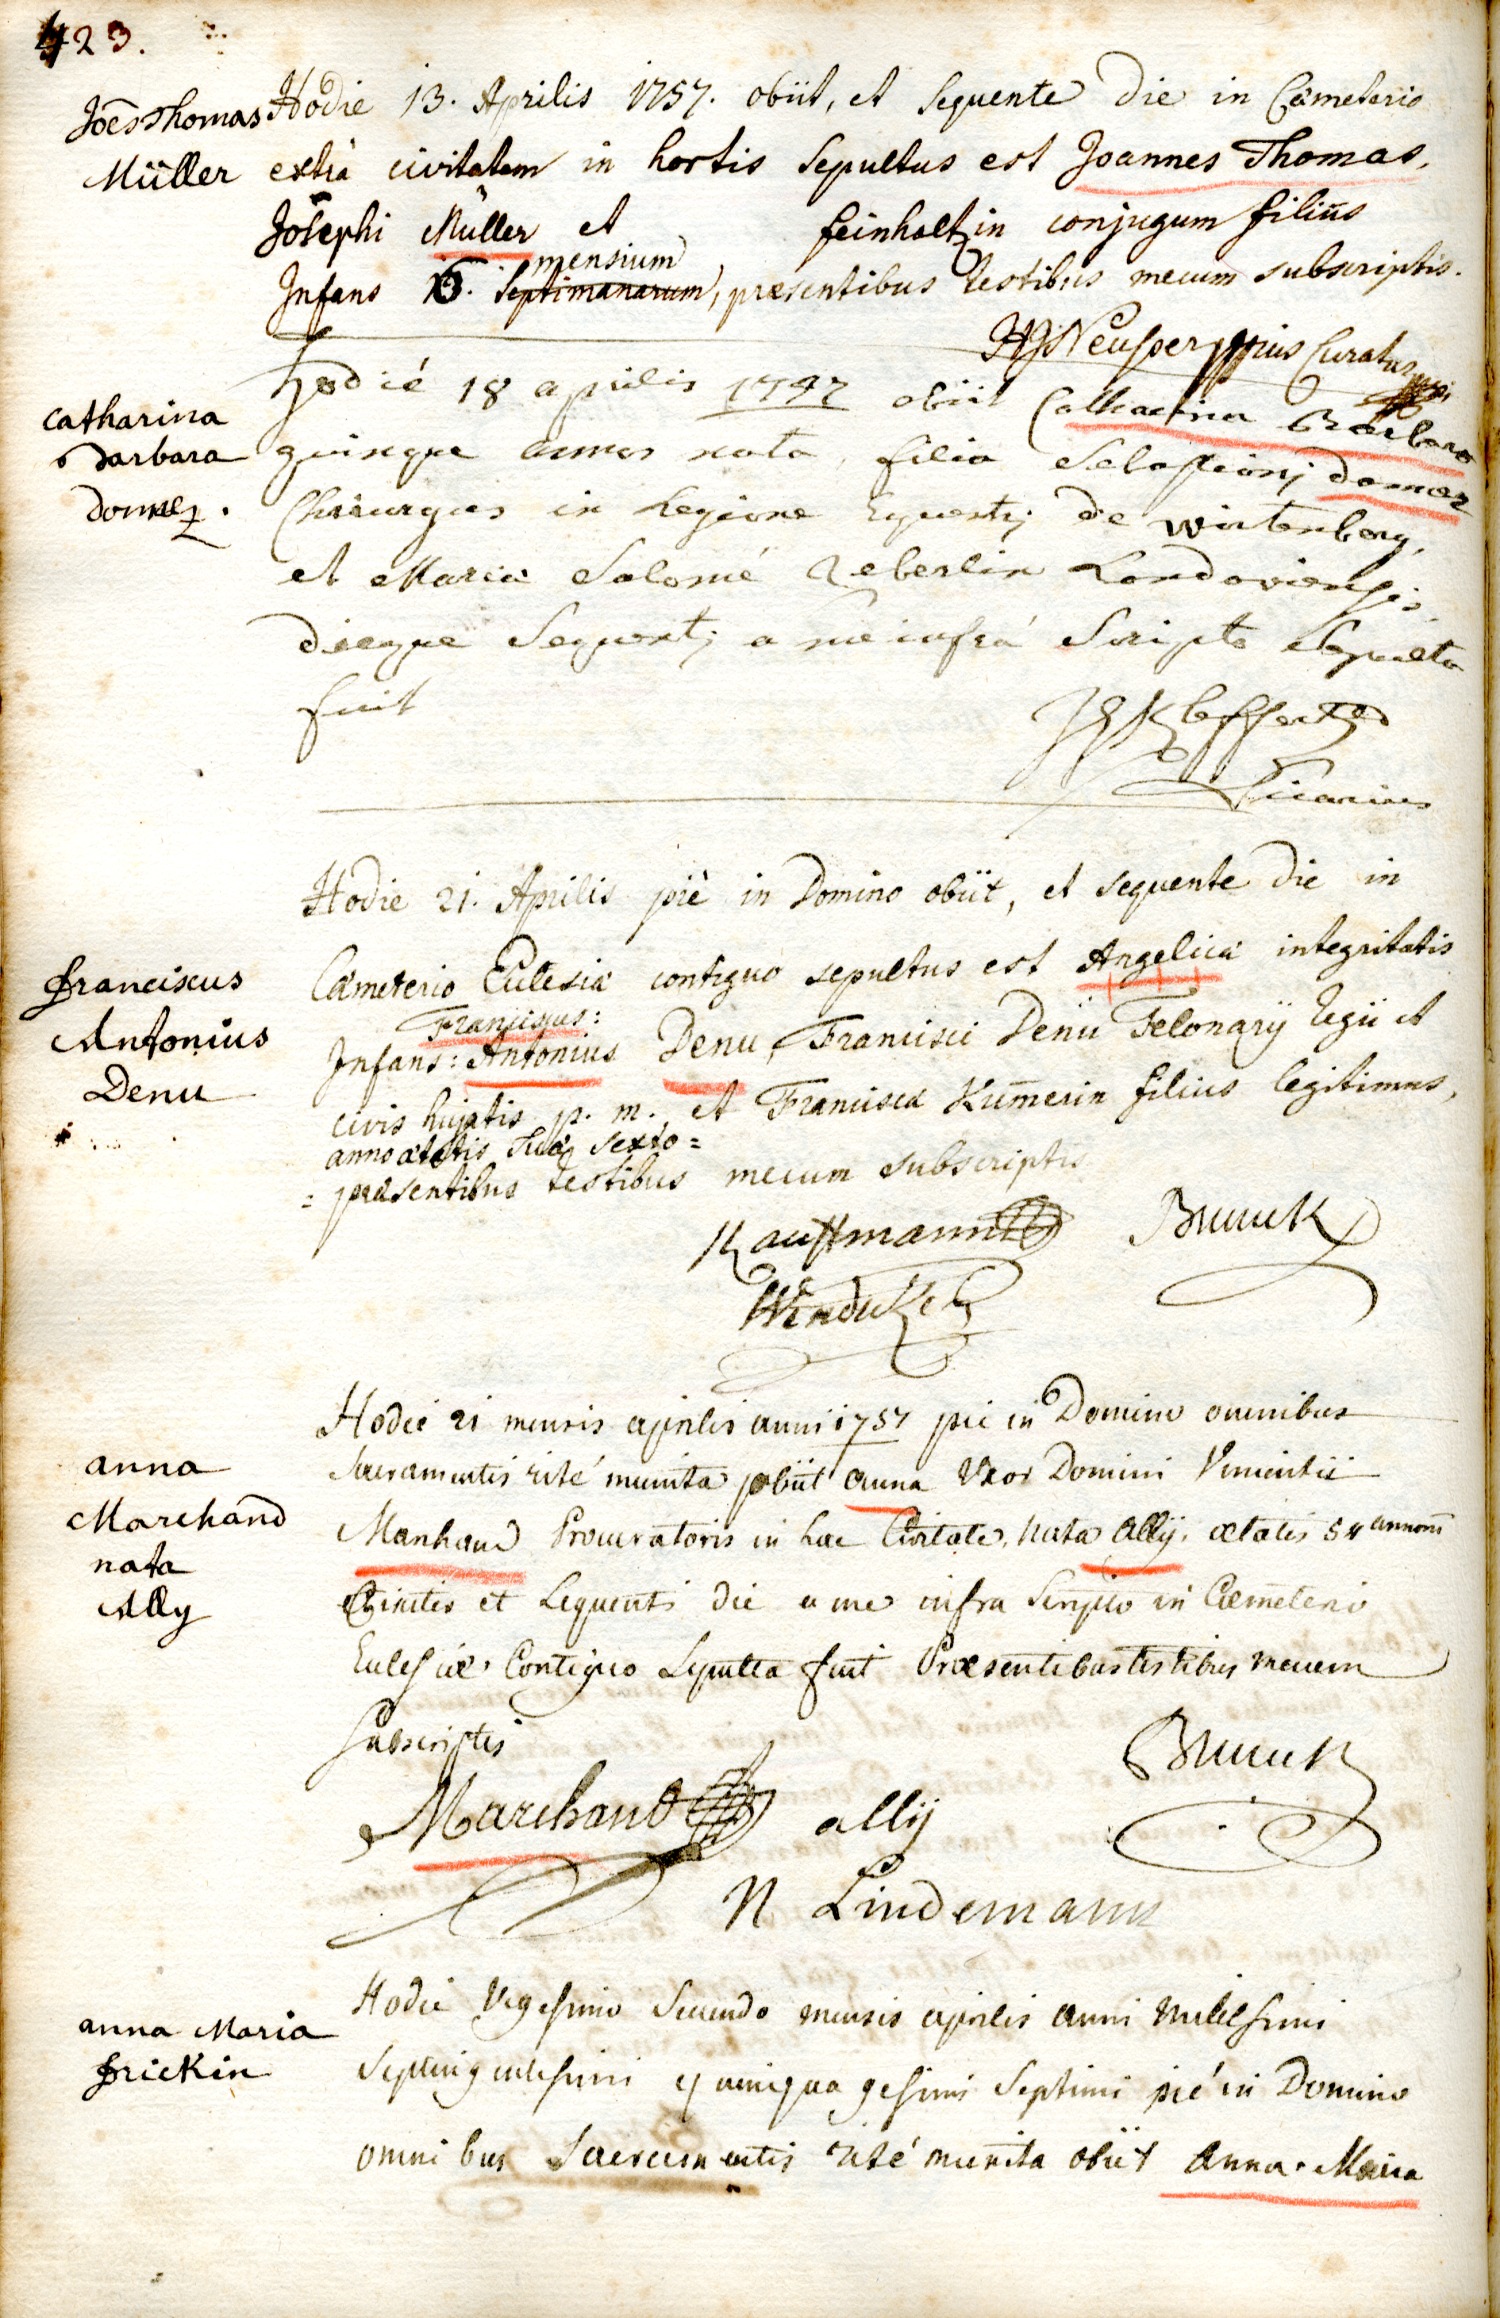 423.
Joēs Thomas
Müller
Hodie 13. Aprilis 1757. obiit, et sequente die in Cœmeterio
extrà civitatem in hortis sepultus est Joannes Thomas,
Josephi Müller et feinholtzin conjugum filius
mensium
Infans septimanarum, præsentibus testibus mecum subscriptis.
Curatus
catharina
barbara
domez.
hodié 18 aprilis 1757 obiit Catharina Barbara
quinque annos nata, filia Sebastiani domez
Chirurgus in Legione Equestri de wirtenberg,
et Maria Salomé Zeberlin Landaviensis,
dieque sequenti a me infrá Scripto Sepulta
fuit
Vicarius
franciscus
Antonius
Denu
Hodie 21. Aprilis piè in Domino obiit, et sequente die in
Cœmeterio Eclesiæ contiguo sepultus est Angelicæ integritatis
Franciscus:
Infans: Antonius Denu, Francisci Denü Telonarÿ Regii et
civis hujatis p. m. et Francisca Kum̄erin filius legitimus,
anno ætatis suæ sexto =
= præsentibus testibus mecum subscriptis
Kauffmann Brunck
anna
Marchand
nata
Ally
Hodié 21 mensis aprilis anni 1757 pié in Domino omnibus
Sacramentis rité munita obiit anna Uxor Domini Vincentii
Marchand Procuratoris in hac Civitate, nata allÿ, ætatis annorū
et sequenti die a me infra scripto in Cœmeterio
Eclesiæ Contiguo sepulta fuit Præsentibus testibus mecum
subscriptis
Brunck
Marchand allÿ
N Lindemann
anna Maria
frickin
Hodié vigesimo secundo mensis aprilis anni millesimi
septingentesimi quinquagesimi septimi pié in Domino
omnibus Sacramentis rité munita obiit Anna Maria